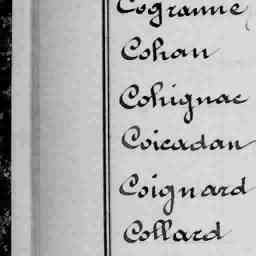 Cogranne
Cohan
Cohignac
Coicadan
Coignard
Collard